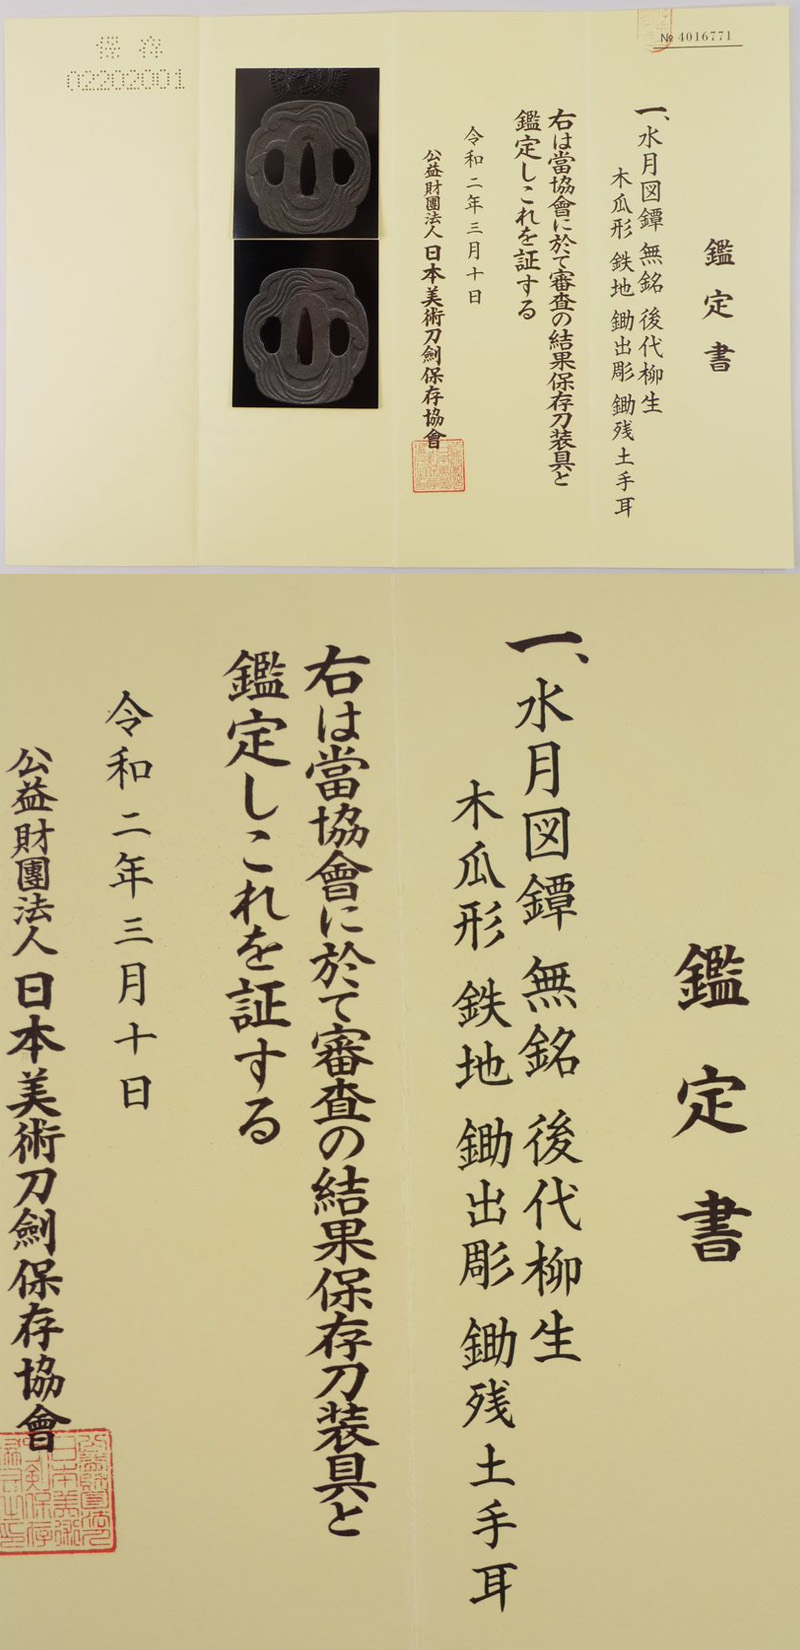 保存
02202001
№ 4016771
鑑定書
一、水月図鐔 無銘 後代柳生
木瓜形 鉄地 鋤出彫 鋤残土手耳
右は當協會に於て審査の結果保存刀装具と
鑑定しこれを証する
令和二年三月十日
公益財團法人日本美術刀劍保存協會
鑑定書
一、水月図鐔 無銘 後代柳生
木瓜形 鉄地 鋤出彫 鋤残土手耳
右は當協會に於て審査の結果保存刀装具と
鑑定しこれを証する
令和二年三月十日
公益財團法人日本美術刀劍保存協會